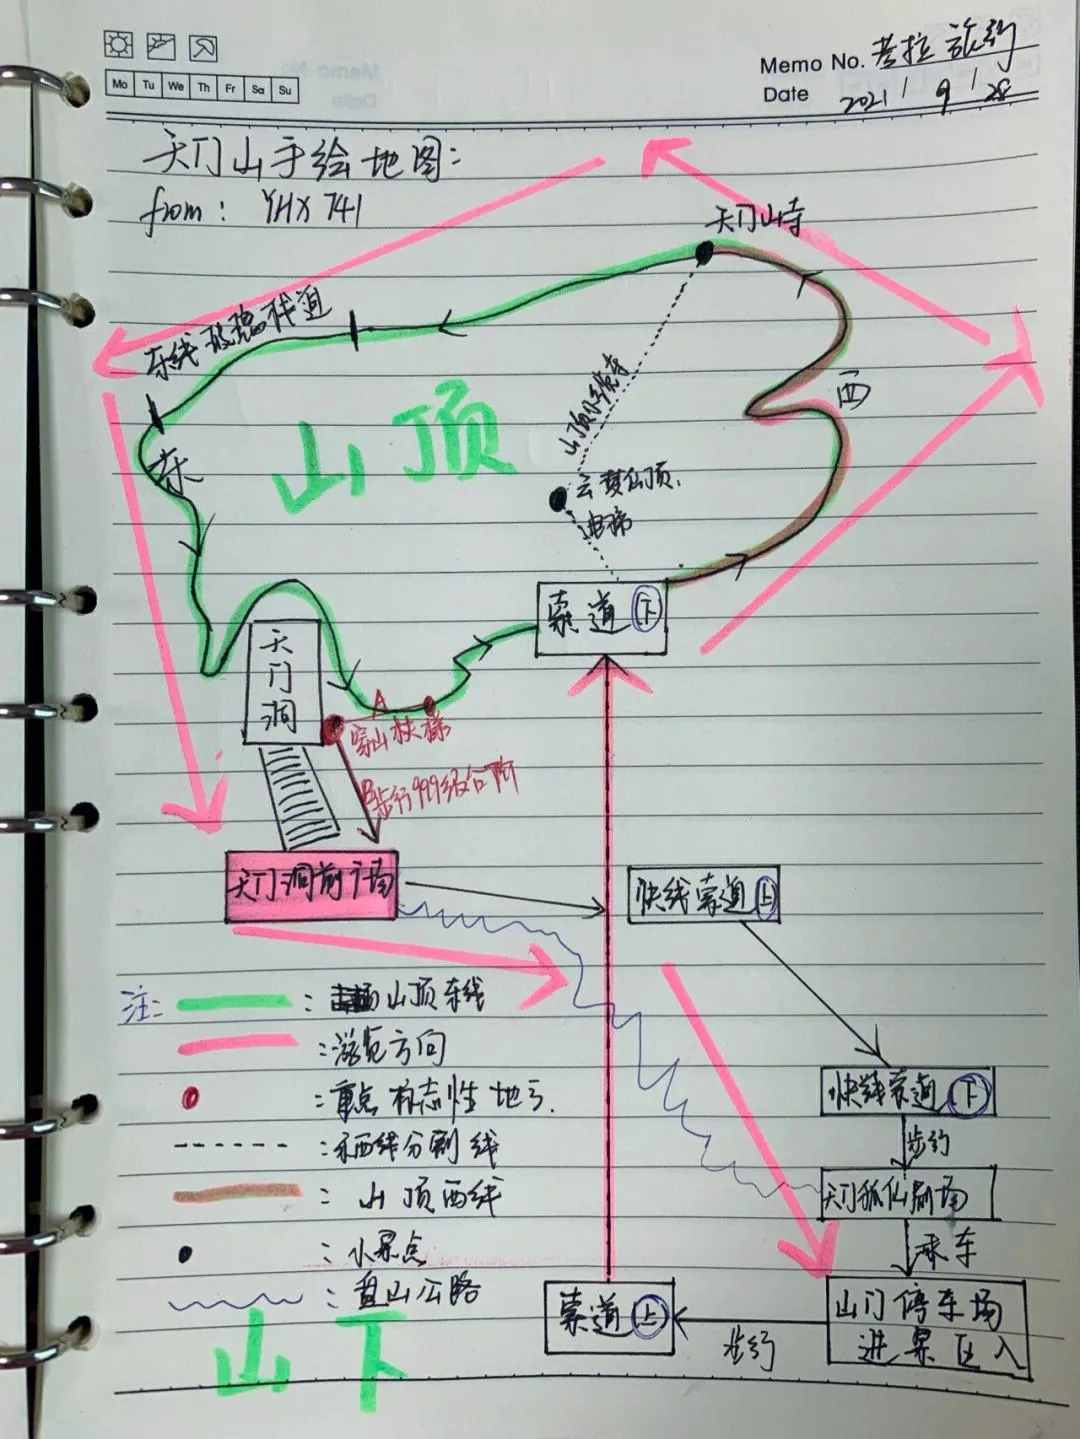 Memo No. 考拉旅行
Mo Tu We Th Fr Sa Su
Date 2021/9/28
天门山手绘地图:
from: YHX741
天门山寺
东线玻璃栈道
西
山顶
东
云梦仙顶.
电梯
索道下
天门洞
穿山扶梯
步行999级台阶
天门洞前广场
快线索道上
注: : 山顶东线
: 游览方向
: 重点标志性地方.
: 东西线分割线
: 山顶西线
: 小景点
: 盘山公路
快线索道下
步行
天门狐仙剧场
乘车
山门停车场
进景区入
步行
索道上
山下